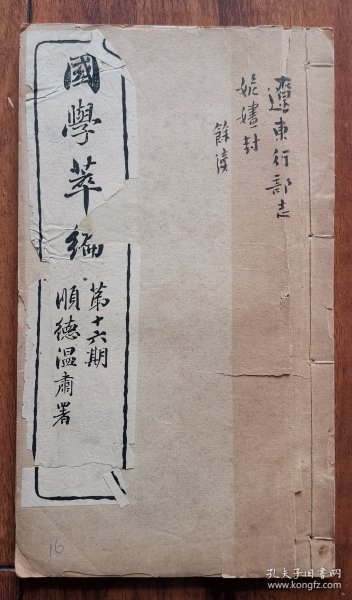 遼東行部志
婼嫿封
餘瀆
國學萃編
第十六期
順德温肅署
16
孔夫子旧书网
www.kongfz.com